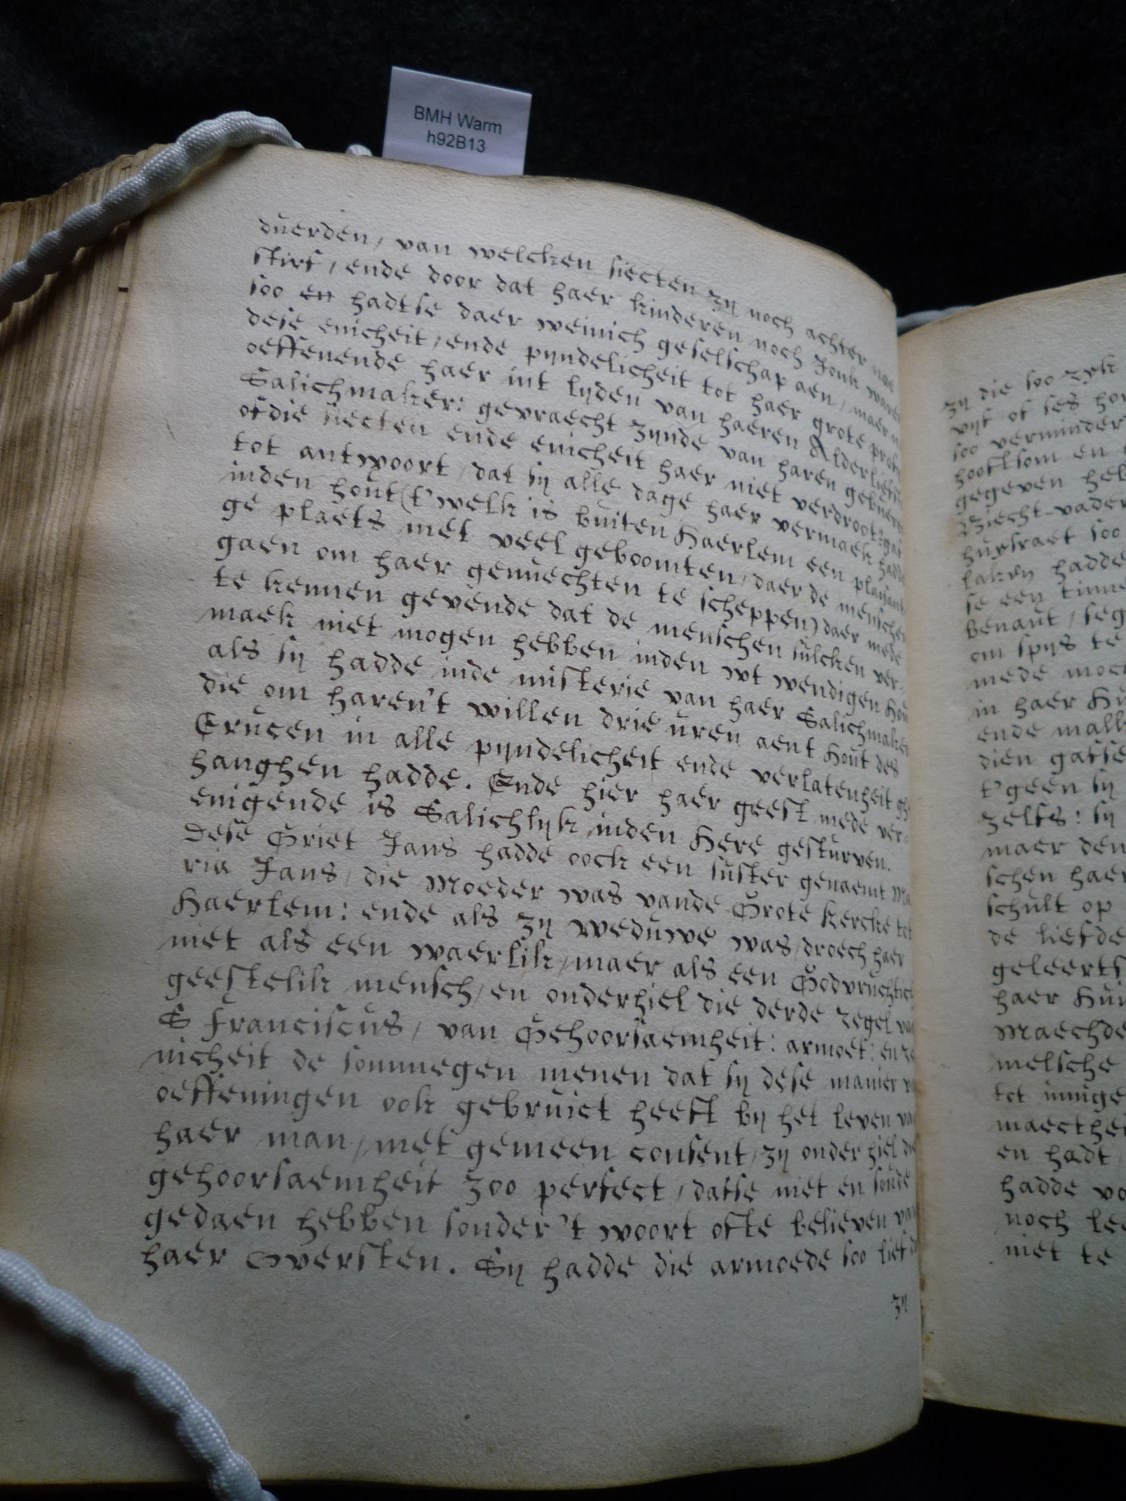 BMH Warm
h92B13
duerden, van welcken siecten zij noch achter nae
stirf, ende door dat haer kinderen noch Jonk waren
soo en hadtse daer weinich geselschap aen, maer
dese enicheit, ende pijndelicheit tot haer grote
oeffenende haer int lijden van haeren Alderliefsten
Salichmaker: gevraecht zijnde van haren gebueren
of die siecten ende enicheit haer niet verdroot: gaf
tot antwoort, dat sij alle dage haer vermaek hadde
inden hout (t'welk is buiten Haerlem een plaisant
ge plaets met veel geboomten, daer de menschen
gaen om haer genuechten te scheppen) daer mede
te kennen gevende dat de menschen sulcken ver-
maek niet mogen hebben inden wt wendigen Hout
als sij hadde inde misterie van haer Salichmaker
die om haren't willen drie uren aent Hout des
Crucen in alle pijndelicheit ende verlatenheit ge
hanghen hadde. Ende hier haer geest mede ver-
enigende is Salichlijk inden Here gesturven.
Dese Griet Jans hadde oock een suster genaemt Ma
ria Jans, die Moeder was vande Grote Kercke tot
Haerlem: ende als zij weduwe was, droech haer
niet als een waerlik, maer als een Godvruchtich
geestelik mensch, en onderhiel die derde regel van
S Franciscus, van Gehoorsaemheit: armoet: en re
nicheit de sommegen menen dat sij dese manier van
oeffeningen ook gebruict heeft bij het leven van
haer man, met gemeen consent, zij onder hiel die
gehoorsaemheit zoo perfect, datse niet en soude
gedaen hebben sonder 't woort ofte believen van
haer Oversten. Sij hadde die armoede soo lief dat
zij
zij die soo
vijf of ses
soo verminder
hooftsom en
gegeven heb
Biecht-vader
soo
laken hadde
se een tinne
benaut, seg
om spijs te
mede moch
in haer Hu
ende
dien
t'geen sij
zelfs: sij
maer den
schen haer
schult op
de liefde
geleerts
haer Hui
Maechde
melsche
tot innige
maecthei
en hadt
hadde vo
noch lee
niet te